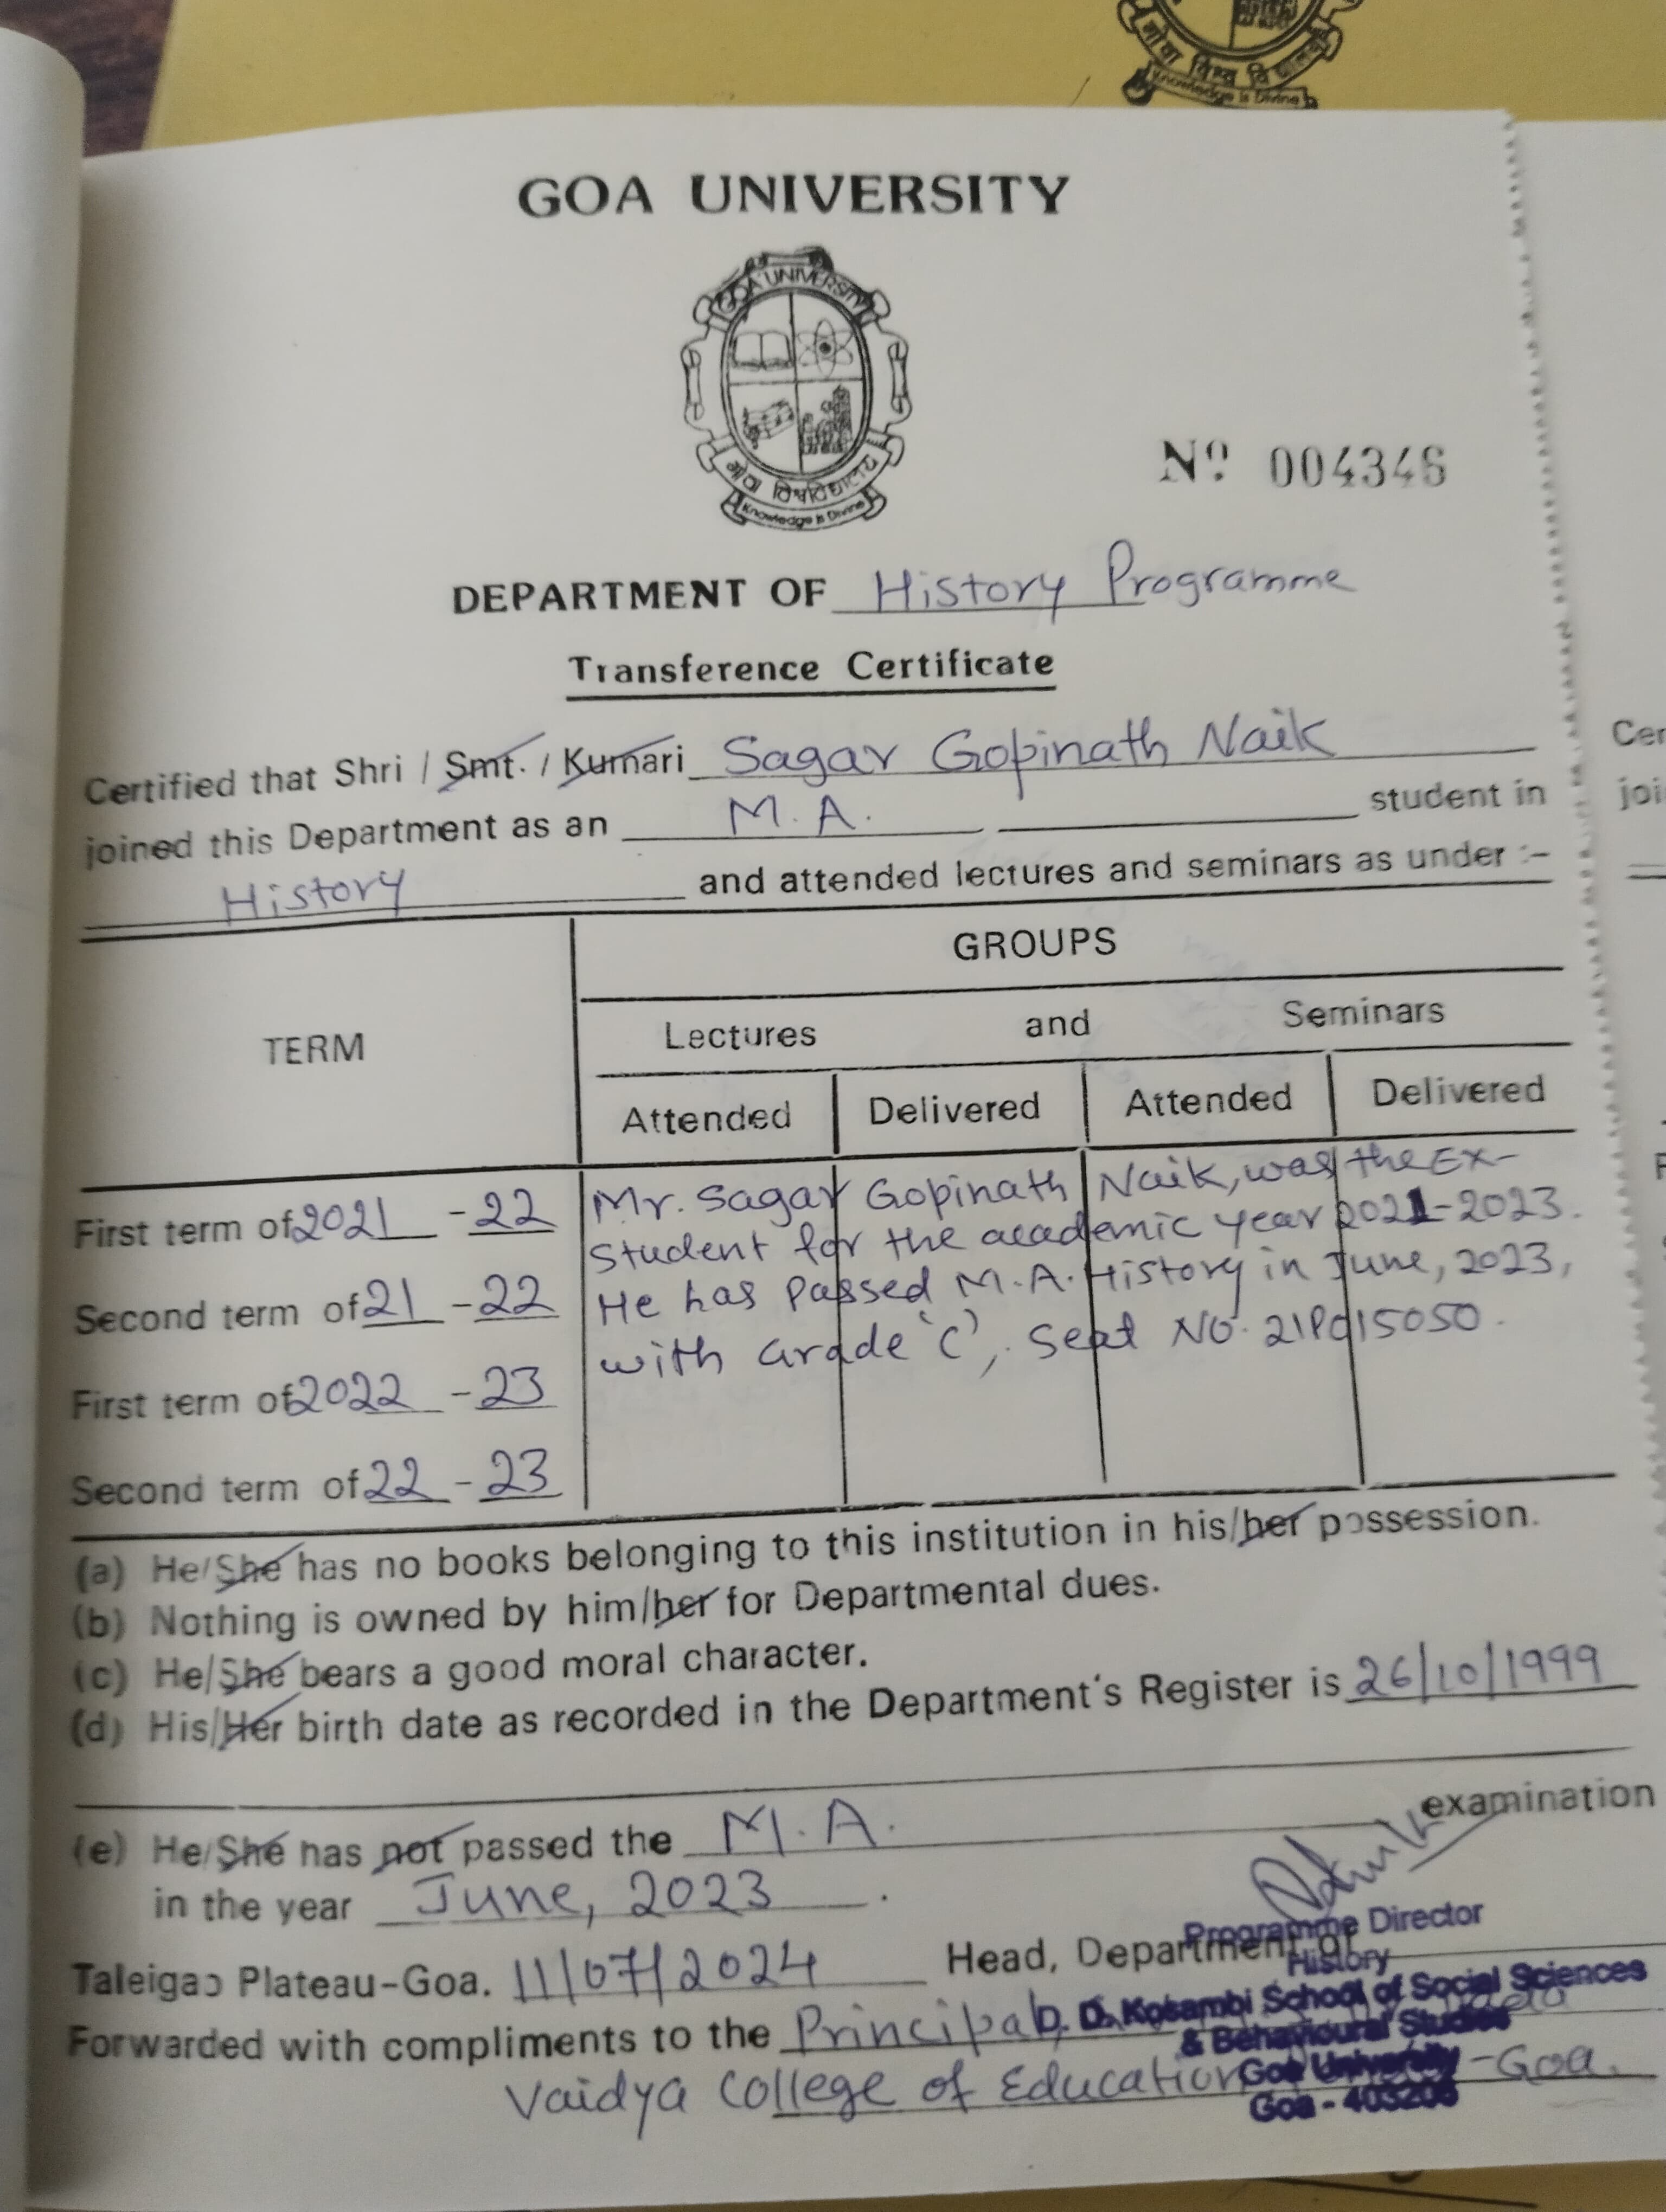 गोवा विश्वविद्यालय
Knowledge is Divine
GOA UNIVERSITY
GOA UNIVERSITY
गोवा विश्वविद्यालय
Knowledge is Divine
Nº 004346
DEPARTMENT OF History Programme
Transference Certificate
Certified that Shri / Smt. / Kumari Sagar Gopinath Naik
joined this Department as an M.A. student in
History and attended lectures and seminars as under :-
GROUPS
TERM
Lectures and Seminars
Attended Delivered Attended Delivered
First term of 2021 - 22
Second term of 21 - 22
First term of 2022 - 23
Second term of 22 - 23
Mr. Sagar Gopinath Naik, was the Ex-
student for the academic year 2021-2023.
He has passed M.A. History in June, 2023,
with Grade 'C', Seat No. 21P015050.
(a) He/She has no books belonging to this institution in his/her possession.
(b) Nothing is owned by him/her for Departmental dues.
(c) He/She bears a good moral character.
(d) His/Her birth date as recorded in the Department's Register is 26/10/1999
(e) He/She has not passed the M.A. examination
in the year June, 2023.
Taleigao Plateau-Goa. 11/07/2024 Head, Department of
Programme Director
History
D. D. Kosambi School of Social Sciences
& Behavioural Studies
Goa University
Goa - 403206
Forwarded with compliments to the Principal,
Vaidya College of Education -Goa.
Cer
joi